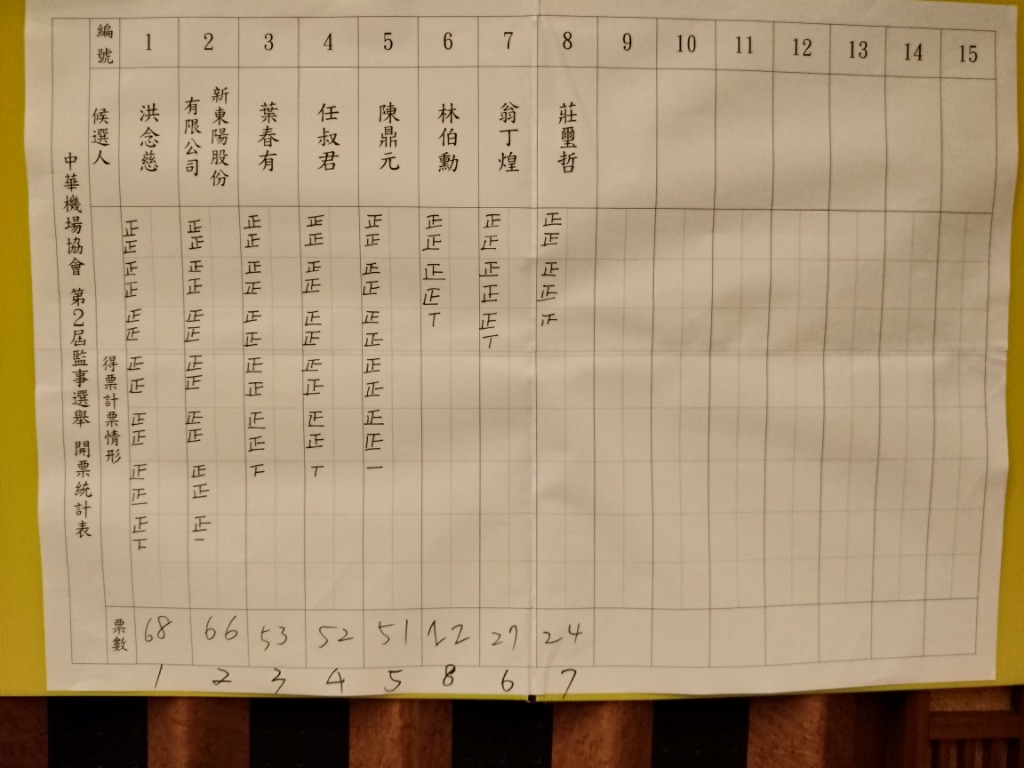 中華機場協會 第2屆監事選舉 開票統計表
編號 1 2 3 4 5 6 7 8 9 10 11 12 13 14 15
候選人 洪念慈 新東陽股份有限公司 葉春有 任叔君 陳鼎元 林伯勳 翁丁煌 莊璽哲
得票計票情形
正正 正正 正正 正正 正正 正正 正正 正正
正正 正正 正正 正正 正正 正正 正正 正正
正正 正正 正正 正正 正正 丅 正丅
正正 正正 正正 正正 正正
正正 正正 正正 正正 正正
正正 正正 下 丅 一
正下 正一
票數 68 66 53 52 51 22 27 24
1 2 3 4 5 8 6 7